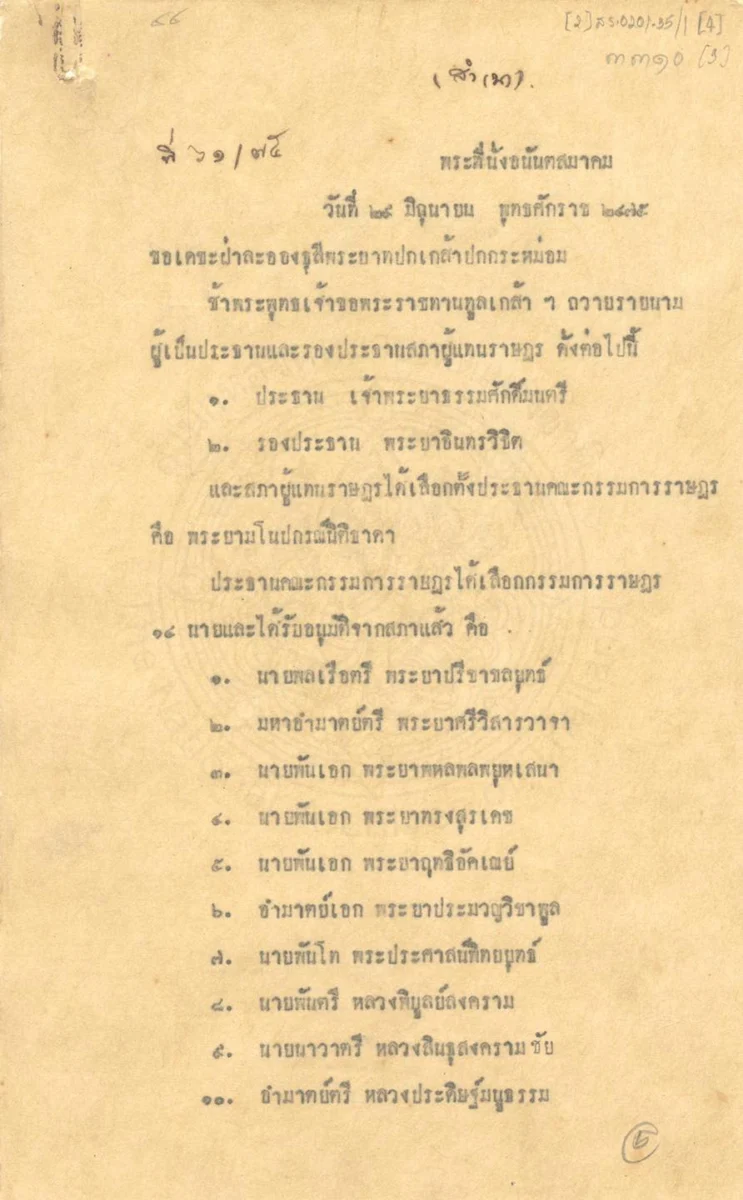 ๔๔
[2] สร.0201.35/1 [4]
๓๓๑๐ [3]
(สำเนา).
ที่ ๖๑/๗๕
พระที่นั่งอนันตสมาคม
วันที่ ๒๙ มิถุนายน พุทธศักราช ๒๔๗๕
ขอเดชะฝ่าละอองธุลีพระบาทปกเกล้าปกกระหม่อม
ข้าพระพุทธเจ้าขอพระราชทานทูลเกล้า ฯ ถวายรายนาม
ผู้เป็นประธานและรองประธานสภาผู้แทนราษฎร ดั่งต่อไปนี้
๑. ประธาน เจ้าพระยาธรรมศักดิ์มนตรี
๒. รองประธาน พระยาอินทรวิชิต
และสภาผู้แทนราษฎรได้เลือกตั้งประธานคณะกรรมการราษฎร
คือ พระยามโนปกรณ์นิติธาดา
ประธานคณะกรรมการราษฎรได้เลือกกรรมการราษฎร
๑๔ นายและได้รับอนุมัติจากสภาแล้ว คือ
๑. นายพลเรือตรี พระยาปรีชาชลยุทธ์
๒. มหาอำมาตย์ตรี พระยาศรีวิสารวาจา
๓. นายพันเอก พระยาพหลพลพยุหเสนา
๔. นายพันเอก พระยาทรงสุรเดช
๕. นายพันเอก พระยาฤทธิอัคเณย์
๖. อำมาตย์เอก พระยาประมวญวิชาพูล
๗. นายพันโท พระประศาสน์พิทยยุทธ์
๘. นายพันตรี หลวงพิบูลย์สงคราม
๙. นายนาวาตรี หลวงสินธุสงครามชัย
๑๐. อำมาตย์ตรี หลวงประดิษฐ์มนูธรรม
๖